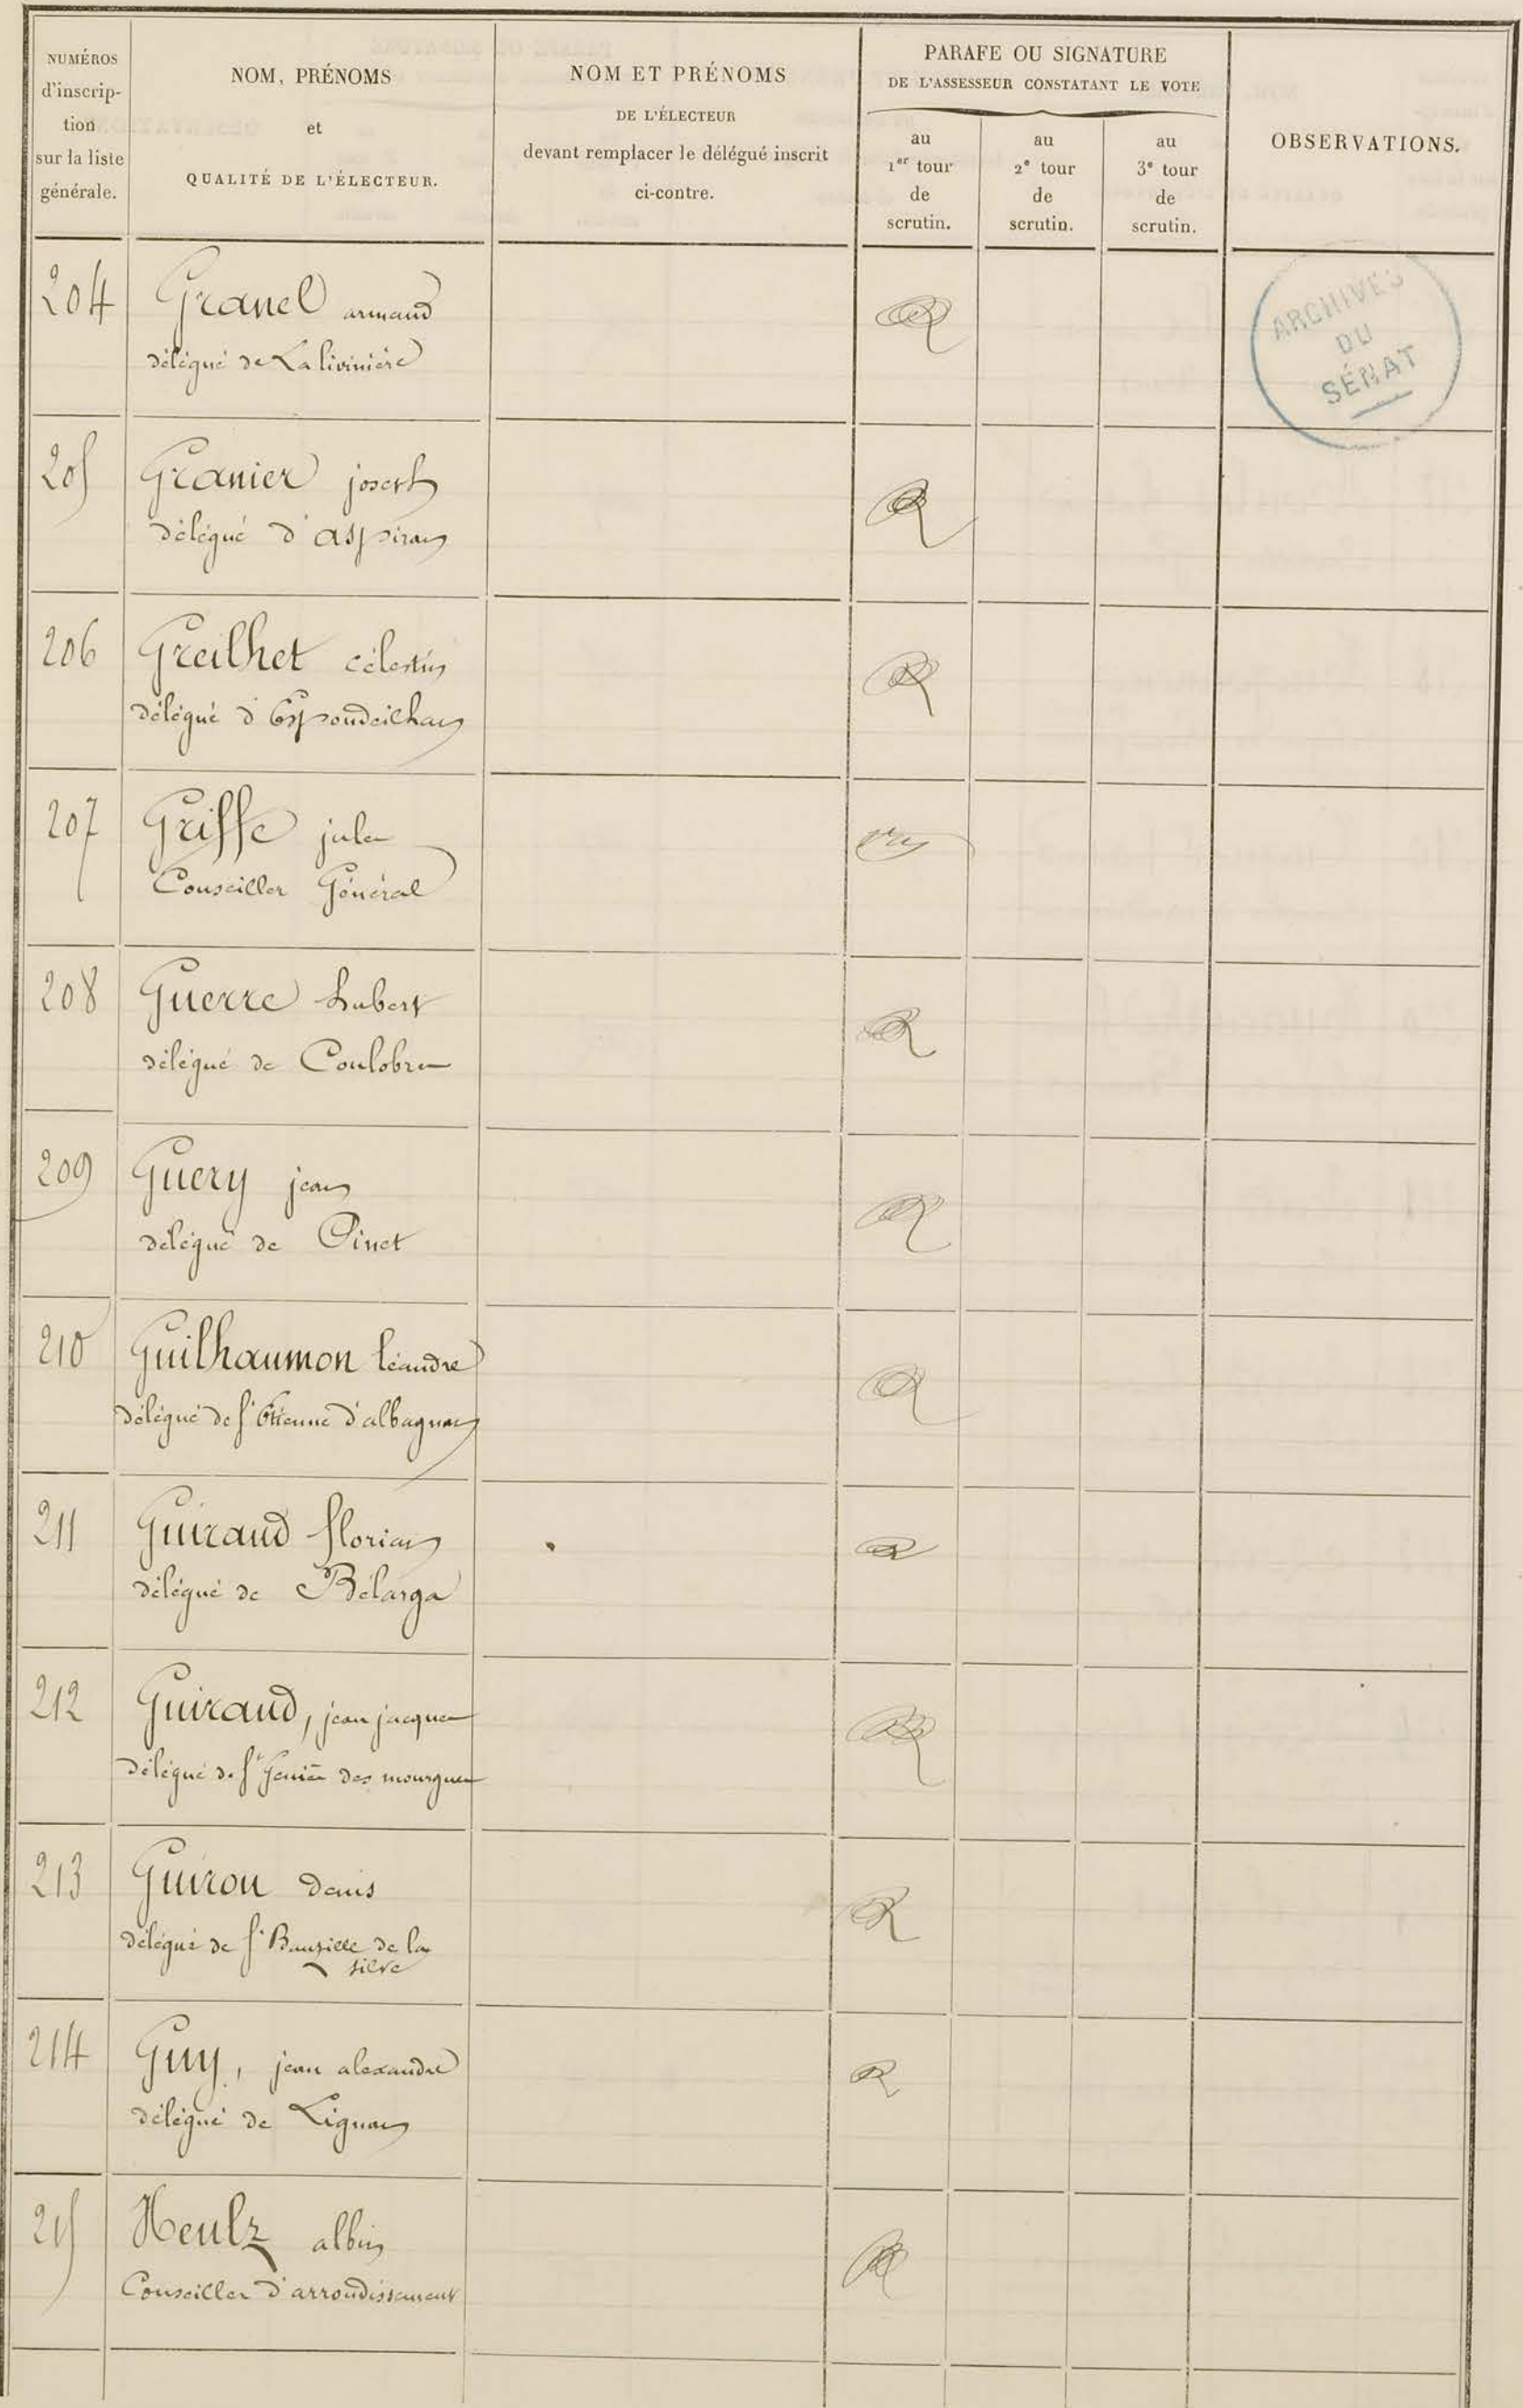 NUMÉROS
d'inscrip-
tion
sur la liste
générale.
NOM, PRÉNOMS
et
QUALITÉ DE L'ÉLECTEUR.
NOM ET PRÉNOMS
DE L'ÉLECTEUR
devant remplacer le délégué inscrit
ci-contre.
PARAFE OU SIGNATURE
DE L'ASSESSEUR CONSTATANT LE VOTE
au
1er tour
de
scrutin.
au
2e tour
de
scrutin.
au
3e tour
de
scrutin.
OBSERVATIONS.
ARCHIVES
DU
SÉNAT
204 Granel armand
délégué de Lalivinière
205 Granier joseph
délégué d'aspiran
206 Greilhet célestin
délégué d'Espondeilhan
207 Griffe jules
Conseiller Général
208 Guerre hubert
délégué de Coulobres
209 Guery jean
délégué de Pinet
210 Guilhaumon léandre
délégué de St Etienne d'albagnan
211 Guiraud florian
délégué de Bélarga
212 Guiraud, jean jacques
délégué de St Geniès des mourgues
213 Guirou denis
délégué de St Bauzille de la
silve
214 Guy, jean alexandre
délégué de Lignan
215 Heulz albin
Conseiller d'arrondissement